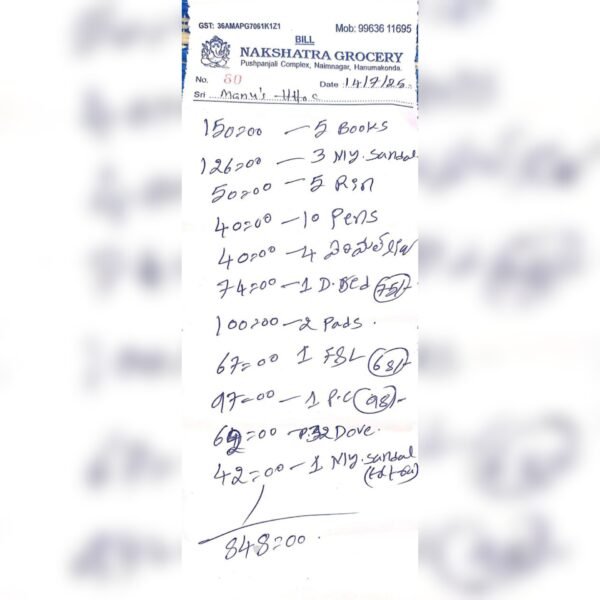 GST: 36AMAPG7061K1Z1 Mob: 99636 11695
BILL
NAKSHATRA GROCERY
Pushpanjali Complex, Naimnagar, Hanumakonda.
No. 80 Date 14/7/25
Sri Manu's
150=00 — 5 Books
126=00 — 3 My. Sandal
50=00 — 5 Rin
40=00 — 10 Pens
40=00 — 4
74=00 — 1 D. Bed 75/-
100=00 — 2 Pads.
67=00 1 F&L 68/-
97=00 — 1 P.C 98/-
62=00 Dove.
42=00 — 1 My. Sandal
848=00